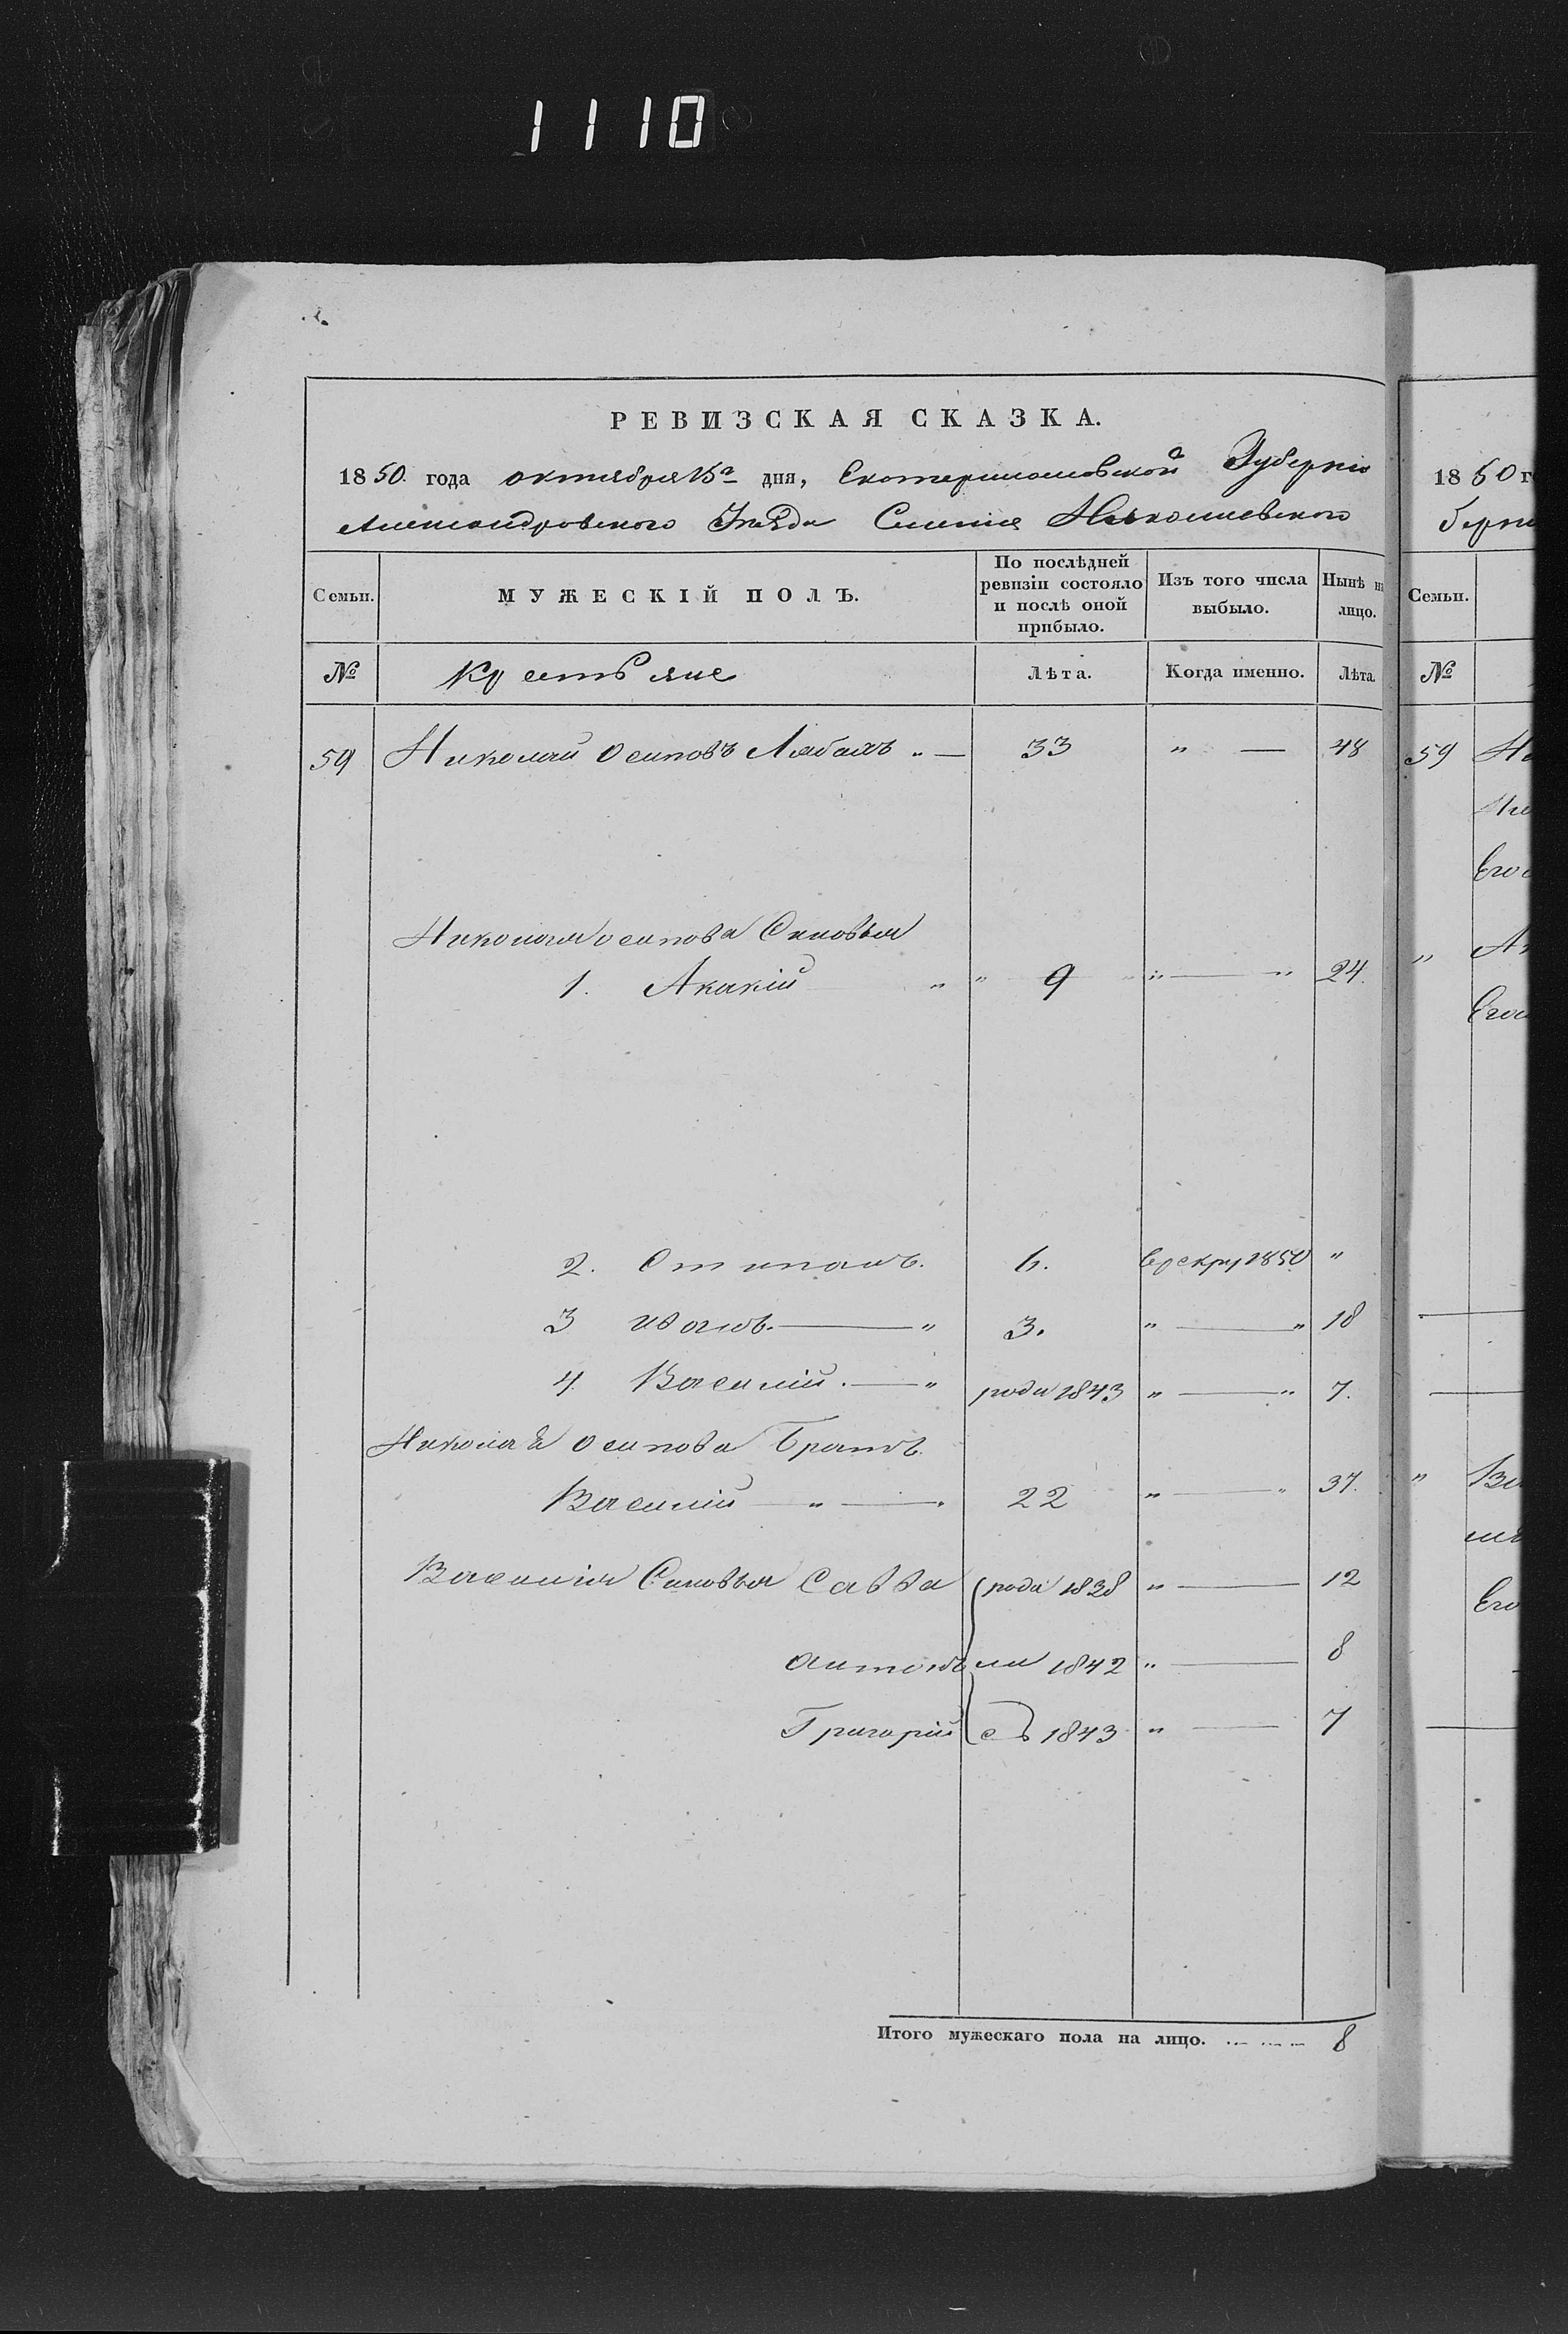 1110
РЕВИЗСКАЯ СКАЗКА.
1850. года октября 15го дня, Екатеринославской Губернiи
Александровского Уезда Селенiя Николаевского
Семьи. МУЖЕСКІЙ ПОЛЪ. По послѣдней ревизіи состояло и послѣ оной прибыло. Изъ того числа выбыло. Нынѣ на лицо.
№ Крестьяне Лѣта. Когда именно. Лѣта.
59 Николай Осиповъ Лябахъ " — 33 " — 48
Николая Осипова Сыновья
1. Акакій " " 9 " — " 24.
2. Степанъ. 6. в рекру 1850 "
3 Иванъ. — " 3. " — " 18
4. Василій. — " рода 1843 " — " 7.
Николая Осипова Братъ
Василій — " — 22 " — " 37.
Василія Сыновья Савва рода 1838 " — 12
Антонъ ил 1842 " — 8
Григорій съ 1843 " — 7
Итого мужескаго пола на лицо. 8
1850 го
берни
Семьи.
№
59 Ни
Его
" Ак
Его
" Ва
Его